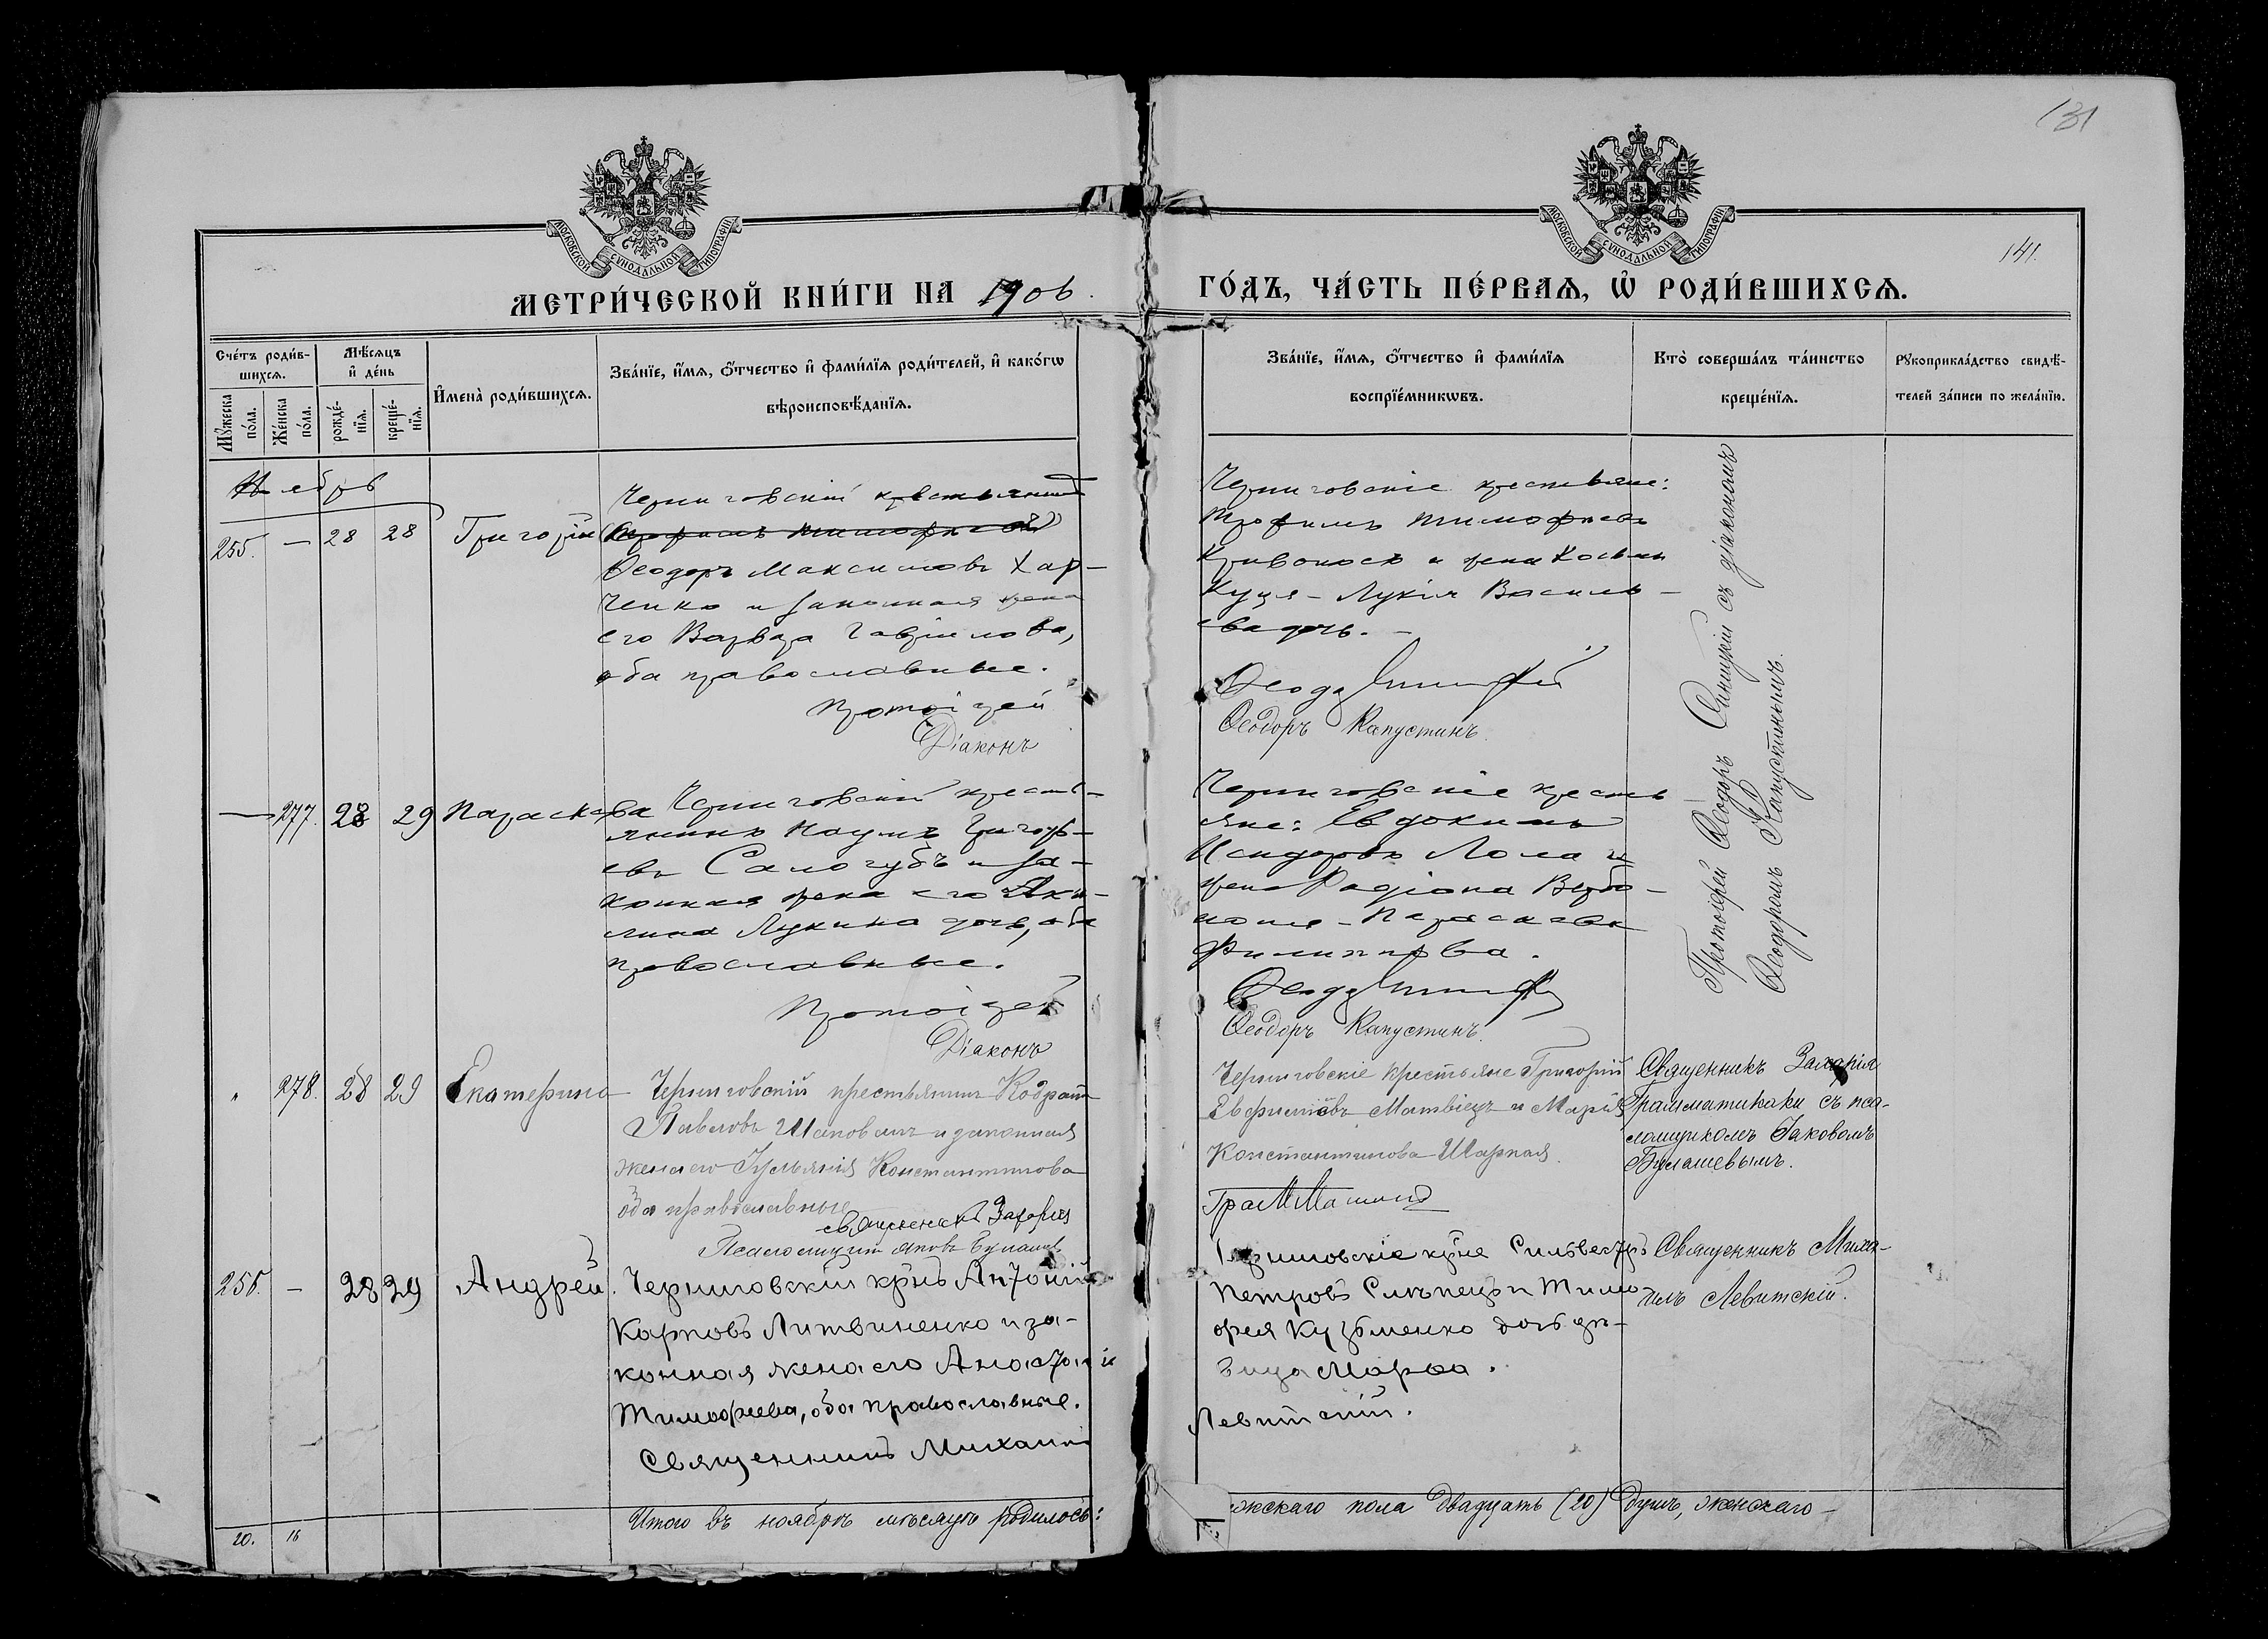 131
141.
МОСКОВСКОЙ СѴНОДАЛЬНОЙ ТИПОГРАФІИ
МОСКОВСКОЙ СѴНОДАЛЬНОЙ ТИПОГРАФІИ
МЕТРИ́ЧЕСКОЙ КНИ́ГИ НА 1906
ГО́ДЪ, ЧА́СТЬ ПЕ́РВАѦ, Ѡ РОДИ́ВШИХСѦ.
Сче́тъ роди́в-
шихсѧ.
Мꙋ́жеска по́ла.
Же́нска по́ла.
Мѣ́сѧцъ
и҆ де́нь
рожде́-
нїѧ.
креще́-
нїѧ.
И҆мена̀ роди́вшихсѧ.
Зва́нїе, и҆́мѧ, ѻ҆́тчество и҆ фами́лїѧ роди́телей, и҆ како́гѡ
вѣроисповѣ́данїѧ.
Зва́нїе, и҆́мѧ, ѻ҆́тчество и҆ фами́лїѧ
воспрїе́мникѡвъ.
Кто̀ соверша́лъ та́инство
креще́нїѧ.
Рꙋкоприкла́дство свидѣ́-
телей за́писи по жела́нїю.
Ноябрь
255. — 28 28 Григорій
Черниговскій крестьянинъ
Трофимъ Тимофеевъ
Ѳеодоръ Максимовъ Хар-
ченко и законная жена
его Варвара Гавріилова,
оба православные.
Протоіерей
Діаконъ
Черниговскіе крестьяне:
Трофимъ Тимофеевъ
Кривоносъ и жена Косьмы
Куця - Лукія Василь-
ева дочь. -
Ѳеодоръ Капустинъ.
Протоіерей Ѳеодоръ Синицкій съ діакономъ
Ѳеодоромъ Капустинымъ.
— 277. 28 29 Параскева
Черниговскій кресть-
янинъ Наумъ Григорь-
евъ Сологубъ и за-
конная жена его Аки-
лина Лукина дочь, оба
православные.
Протоіерей
Діаконъ
Черниговскіе кресть
яне: Евдокимъ
Исидоровъ Лола и
жена Родіона Вербо-
Параскева
Филиппова.
Ѳеодоръ Капустинъ.
" 278. 28 29 Екатерина
Черниговскій крестьянинъ Кодратъ
Павловъ Шаповалъ и законная
жена его Іульянія Константинова
оба православные
священникъ Захарія
Псаломщикъ Яковъ Булашев
Черниговскіе крестьяне Григорій
Евфиміевъ Матвіецъ и Марія
Константинова Шарная.
Священникъ Захарія
Грамматикаки съ пса-
ломщикомъ Іаковомъ
Булашевымъ.
256. — 28 29 Андрей.
Черниговскій крнъ Антоній
Карповъ Литвиненко и за-
конная жена его Анастасія
Тимофеева, оба православные.
Священникъ Михаилъ
Черниговскіе кр̃не Сильвестръ
Петровъ Слѣпецъ и Тимо-
фея Кузьменко дочь дѣ-
вица Марѳа.
Левитскій.
Священникъ Миха-
илъ Левитскій.
20. 18
Итого въ ноябрѣ мѣсяцѣ родилось:
мужскаго пола двадцать (20) душъ, женскаго -